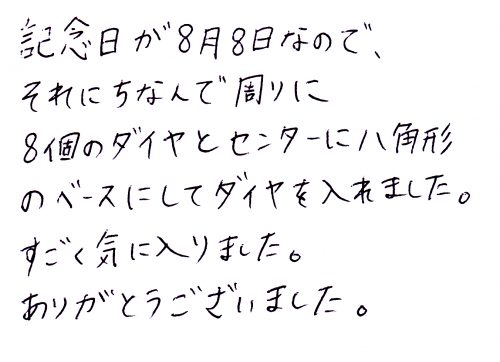 記念日が8月8日なので、
それにちなんで周りに
8個のダイヤとセンターに八角形
のベースにしてダイヤを入れました。
すごく気に入りました。
ありがとうございました。